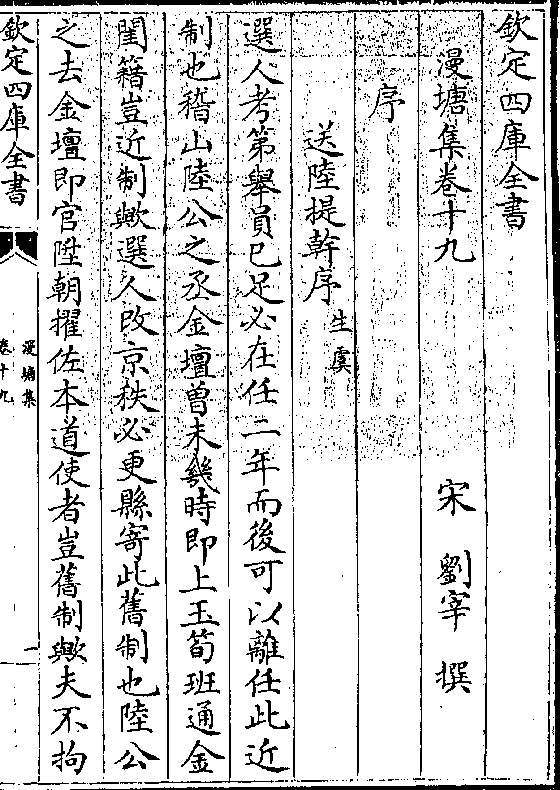 欽定四庫全書
漫塘集卷十九
宋 劉宰 撰
序
送陸提幹序 生虞
選人考第舉員已足必在任二年而後可以離任此近
制也稽山陸公之丞金壇曾未幾時即上玉筍班通金
閨籍豈近制歟選人改京秩必更縣寄此舊制也陸公
之去金壇即官陞朝擢佐本道使者豈舊制歟夫不拘
欽定四庫全書
漫塘集
卷十九
一